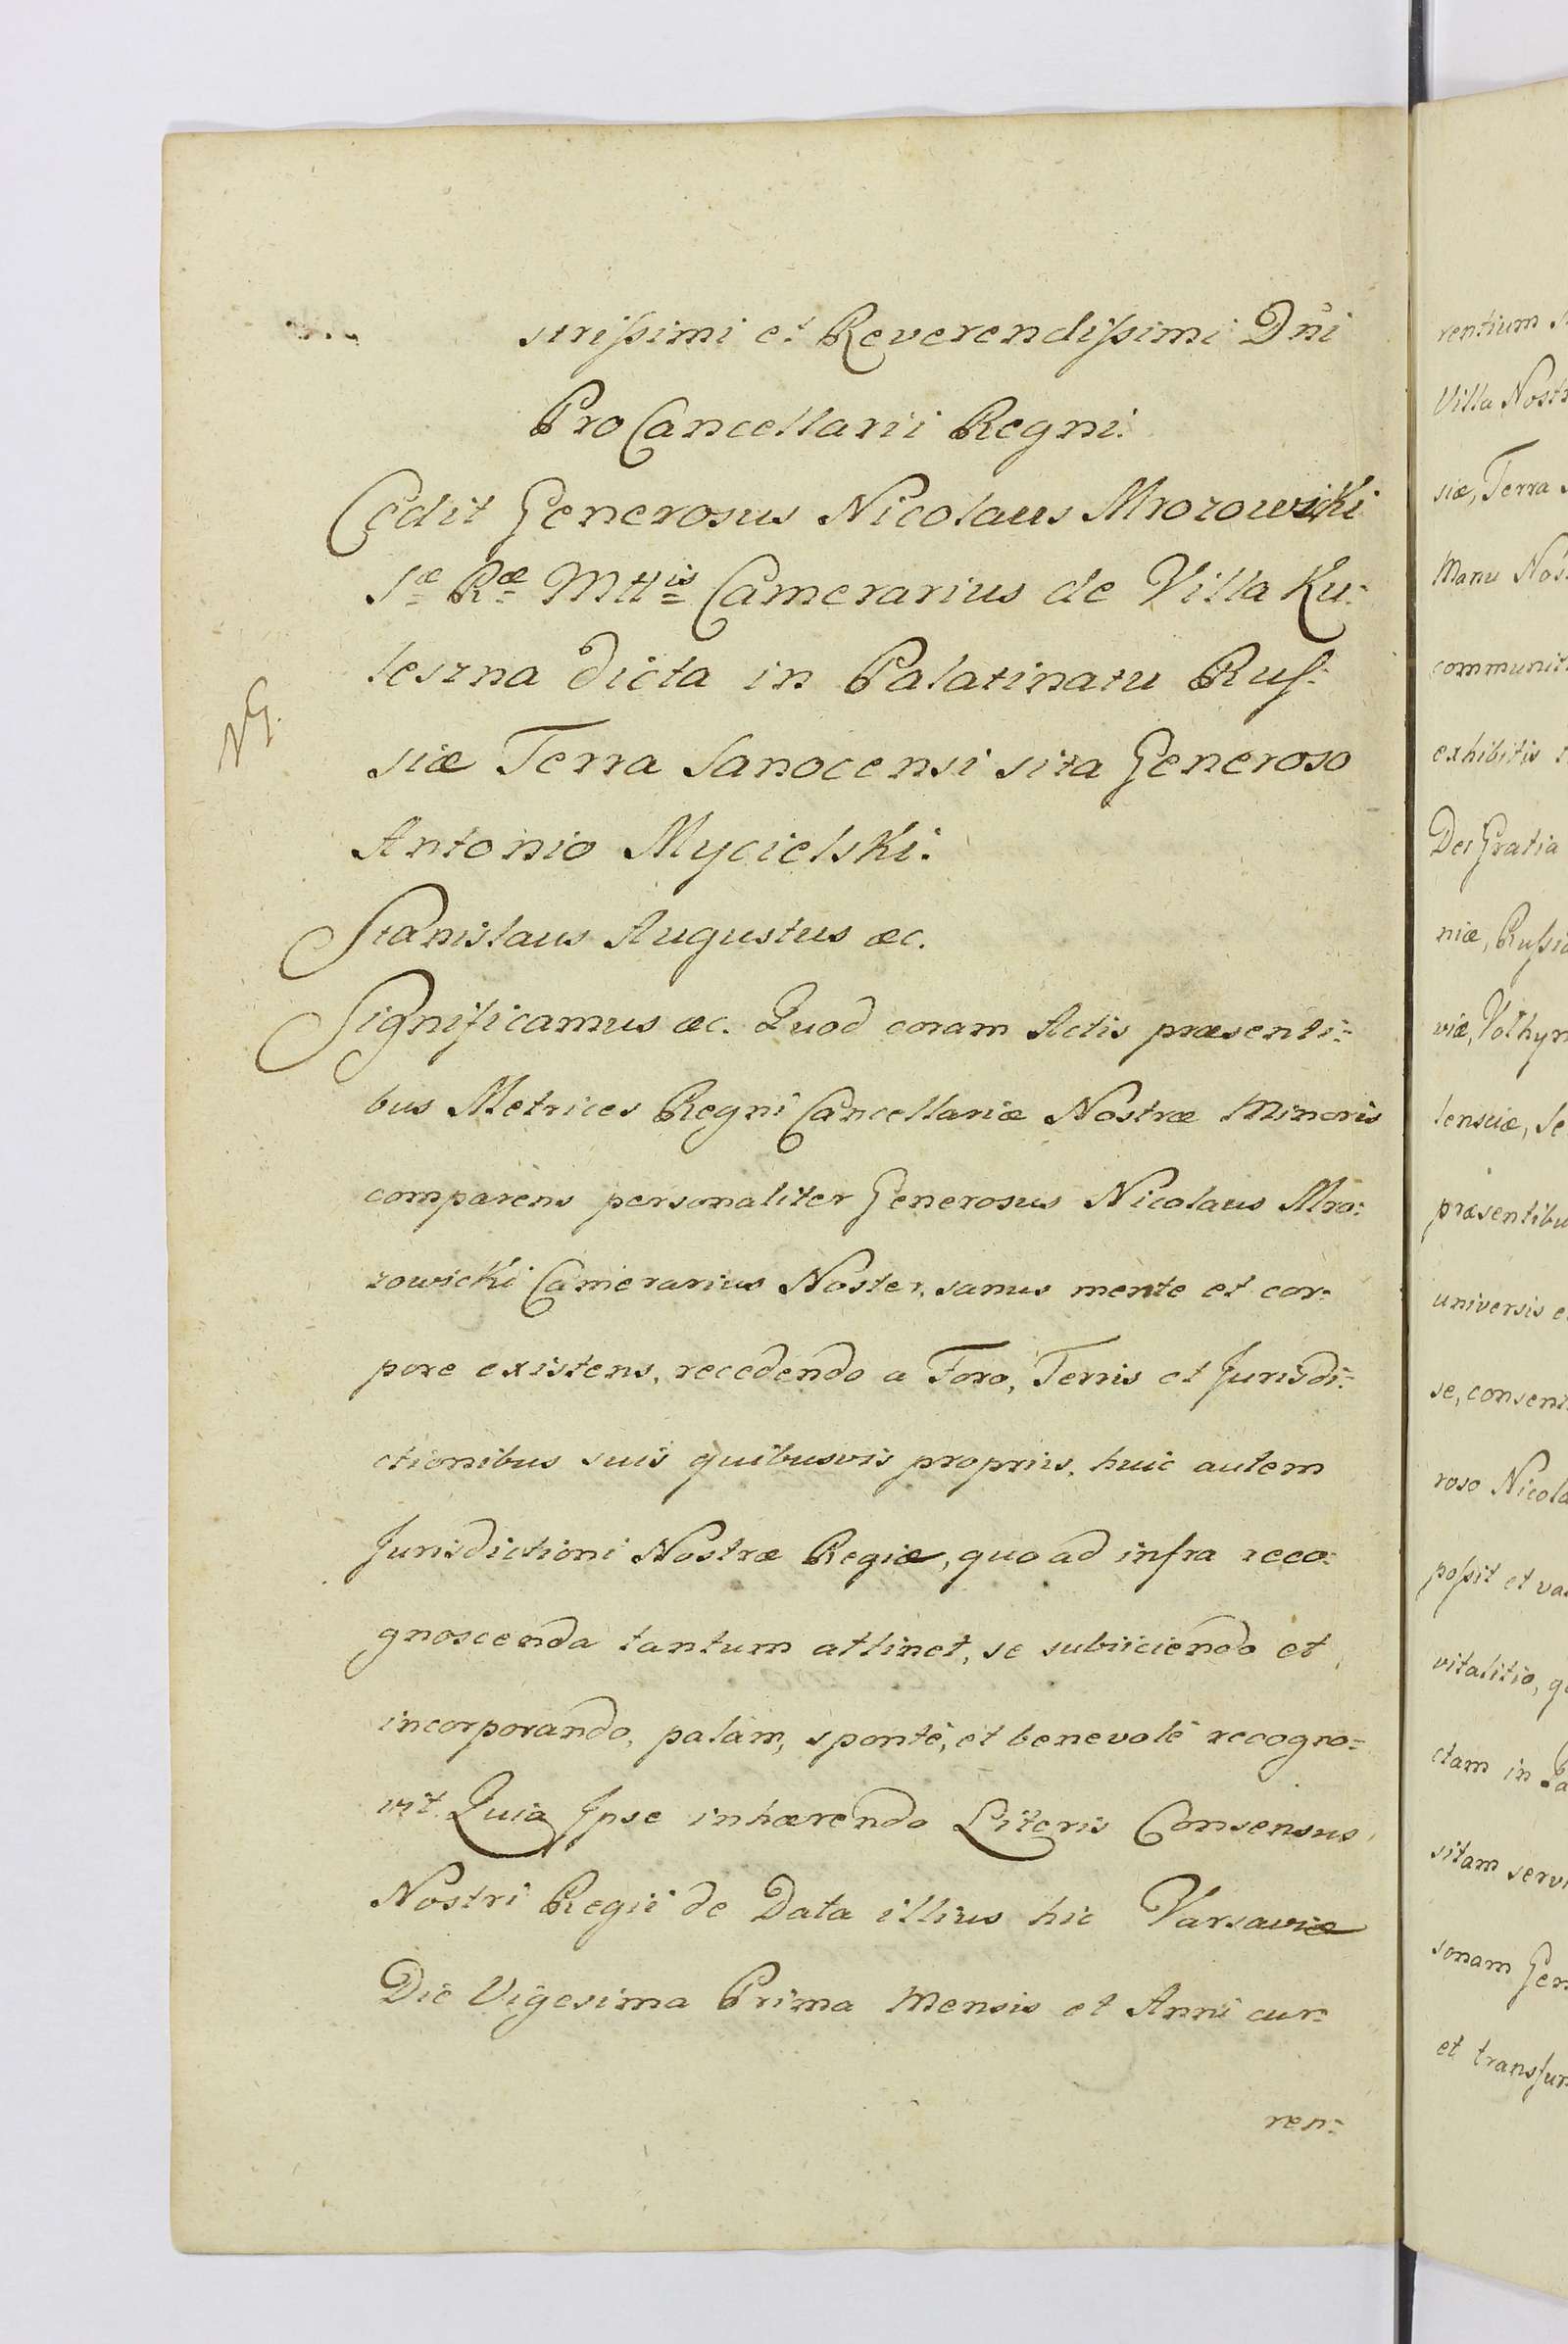 strissimi et Reverendissimi Dñi
Pro Cancellarii Regni.
Cedit Generosus Nicolaus Mrozowicki
Sæ Ræ Mttis Camerarius de Villa Ku:
leszna dicta in Palatinatu Rus:
siæ Terra Sanocensi sita Generoso
Antonio Mycielski.
NG.
Stanislaus Augustus &c.
Significamus &c. Quod coram Actis præsenti:
bus Metrices Regni Cancellariæ Nostræ Minoris
comparens personaliter Generosus Nicolaus Mro:
zowicki Camerarius Noster, sanus mente et cor:
pore existens, recedendo a Foro, Terris et Jurisdi:
ctionibus suis quibusvis propriis, huic autem
Jurisdictioni Nostræ Regiæ, quo ad infra reco:
gnoscenda tantum attinet, se subiiciendo et
incorporando, palàm, spontè, et benevolè recogno:
vit. Quia Ipse inhærendo Literis Consensus
Nostri Regii de Data illius hic Varsaviæ
Die Vigesima Prima Mensis et Anni cur:
ren:
rentium
Villa
siæ, Terra
Manu
exhibitis
Dei Gratia
niæ,
viæ,
universis
se,
roso
possit et
vitalitio,
ctam in
sitam
sonam
et